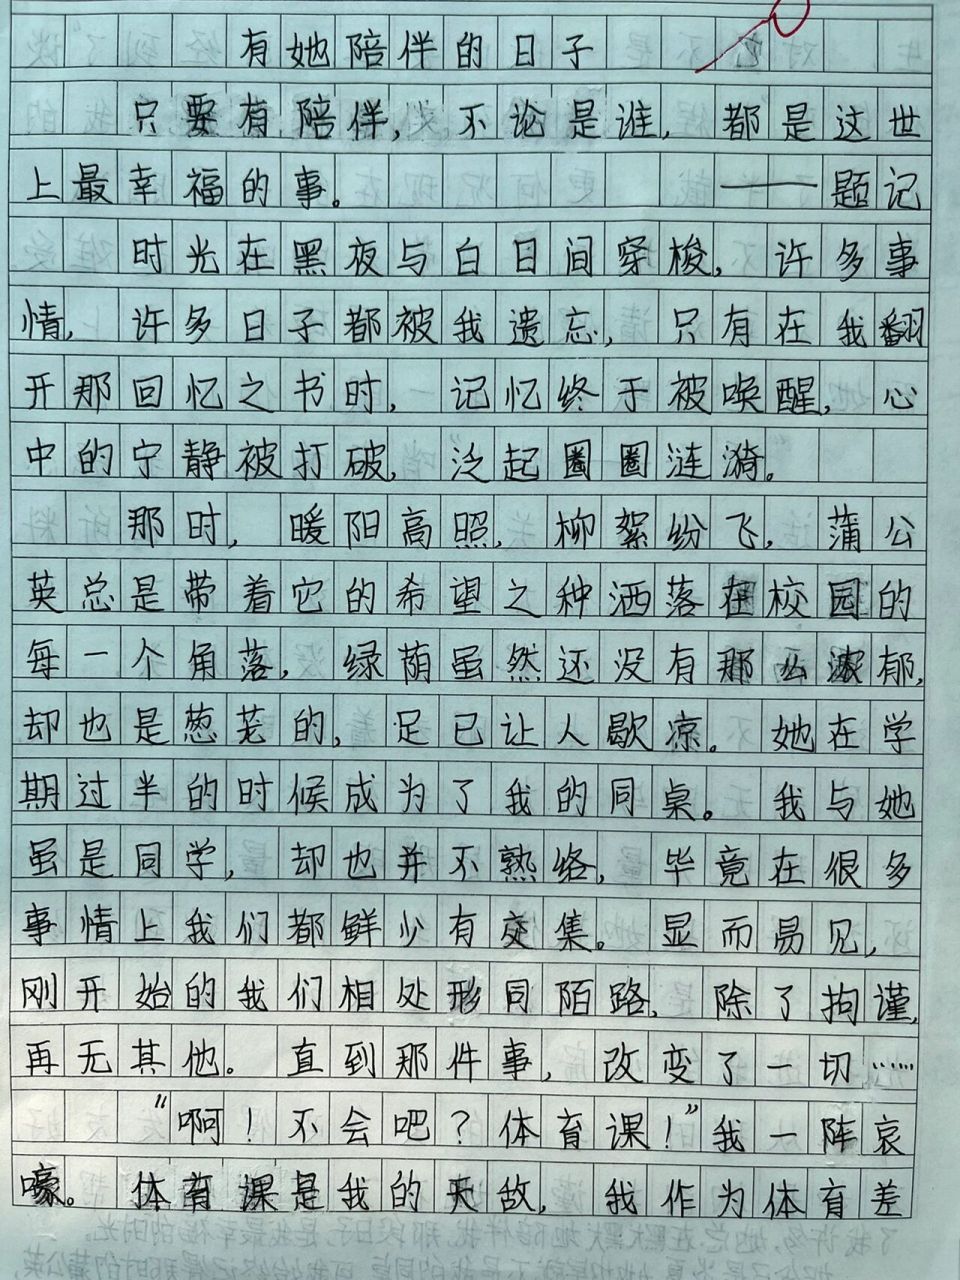 有她陪伴的日子
只要有陪伴,不论是谁,都是这世
上最幸福的事。——题记
时光在黑夜与白日间穿梭,许多事
情,许多日子都被我遗忘,只有在我翻
开那回忆之书时,记忆终于被唤醒,心
中的宁静被打破,泛起圈圈涟漪。
那时,暖阳高照,柳絮纷飞,蒲公
英总是带着它的希望之种洒落在校园的
每一个角落,绿荫虽然还没有那么浓郁,
却也是葱茏的,足已让人歇凉。她在学
期过半的时候成为了我的同桌。我与她
虽是同学,却也并不熟络,毕竟在很多
事情上我们都鲜少有交集。显而易见,
刚开始的我们相处形同陌路,除了拘谨,
再无其他。直到那件事,改变了一切……
“啊!不会吧?体育课!”我一阵哀
嚎。体育课是我的天敌,我作为体育差